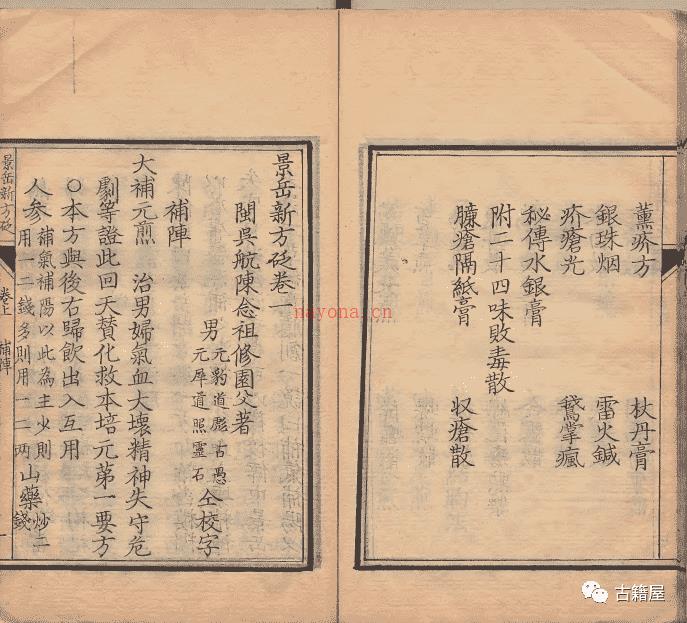 薰疥方 杖丹膏
銀珠烟 雷火鍼
疥瘡光 鵝掌瘋
秘傳水銀膏
附二十四味敗毒散
臁瘡隔紙膏 収瘡散
景岳新方砭卷一
閩吳航陳念祖修園父著
男 元豹道彪古愚
元犀道照靈石 仝校字
補陣
大補元煎 治男婦氣血大壞精神失守危
劇等證此回天賛化救本培元苐一要方
○本方與後右歸飲出入互用
人參 補氣補陽以此為主少則
用一二錢多則用一二兩 山藥 炒二
錢
景岳新方砭 卷上 補陣 一
nayona.cn
古籍屋